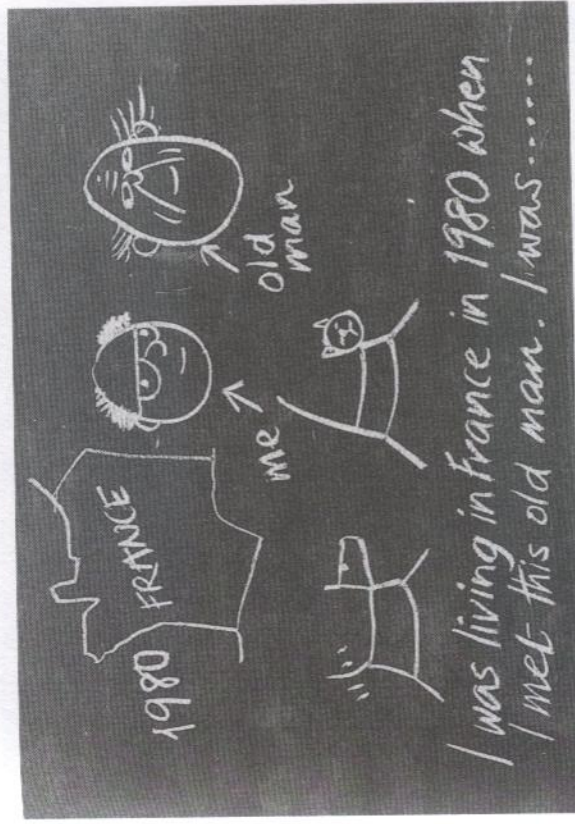 1980
FRANCE
me
old
man
I was living in France in 1980 when
I met this old man. I was.......